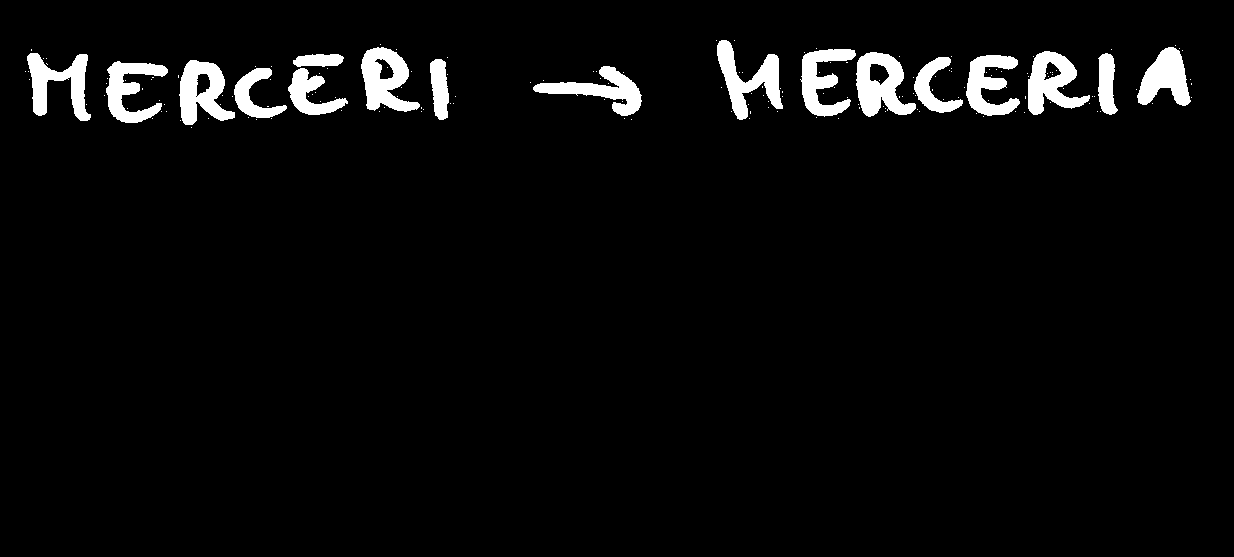 MERCERI → MERCERIA